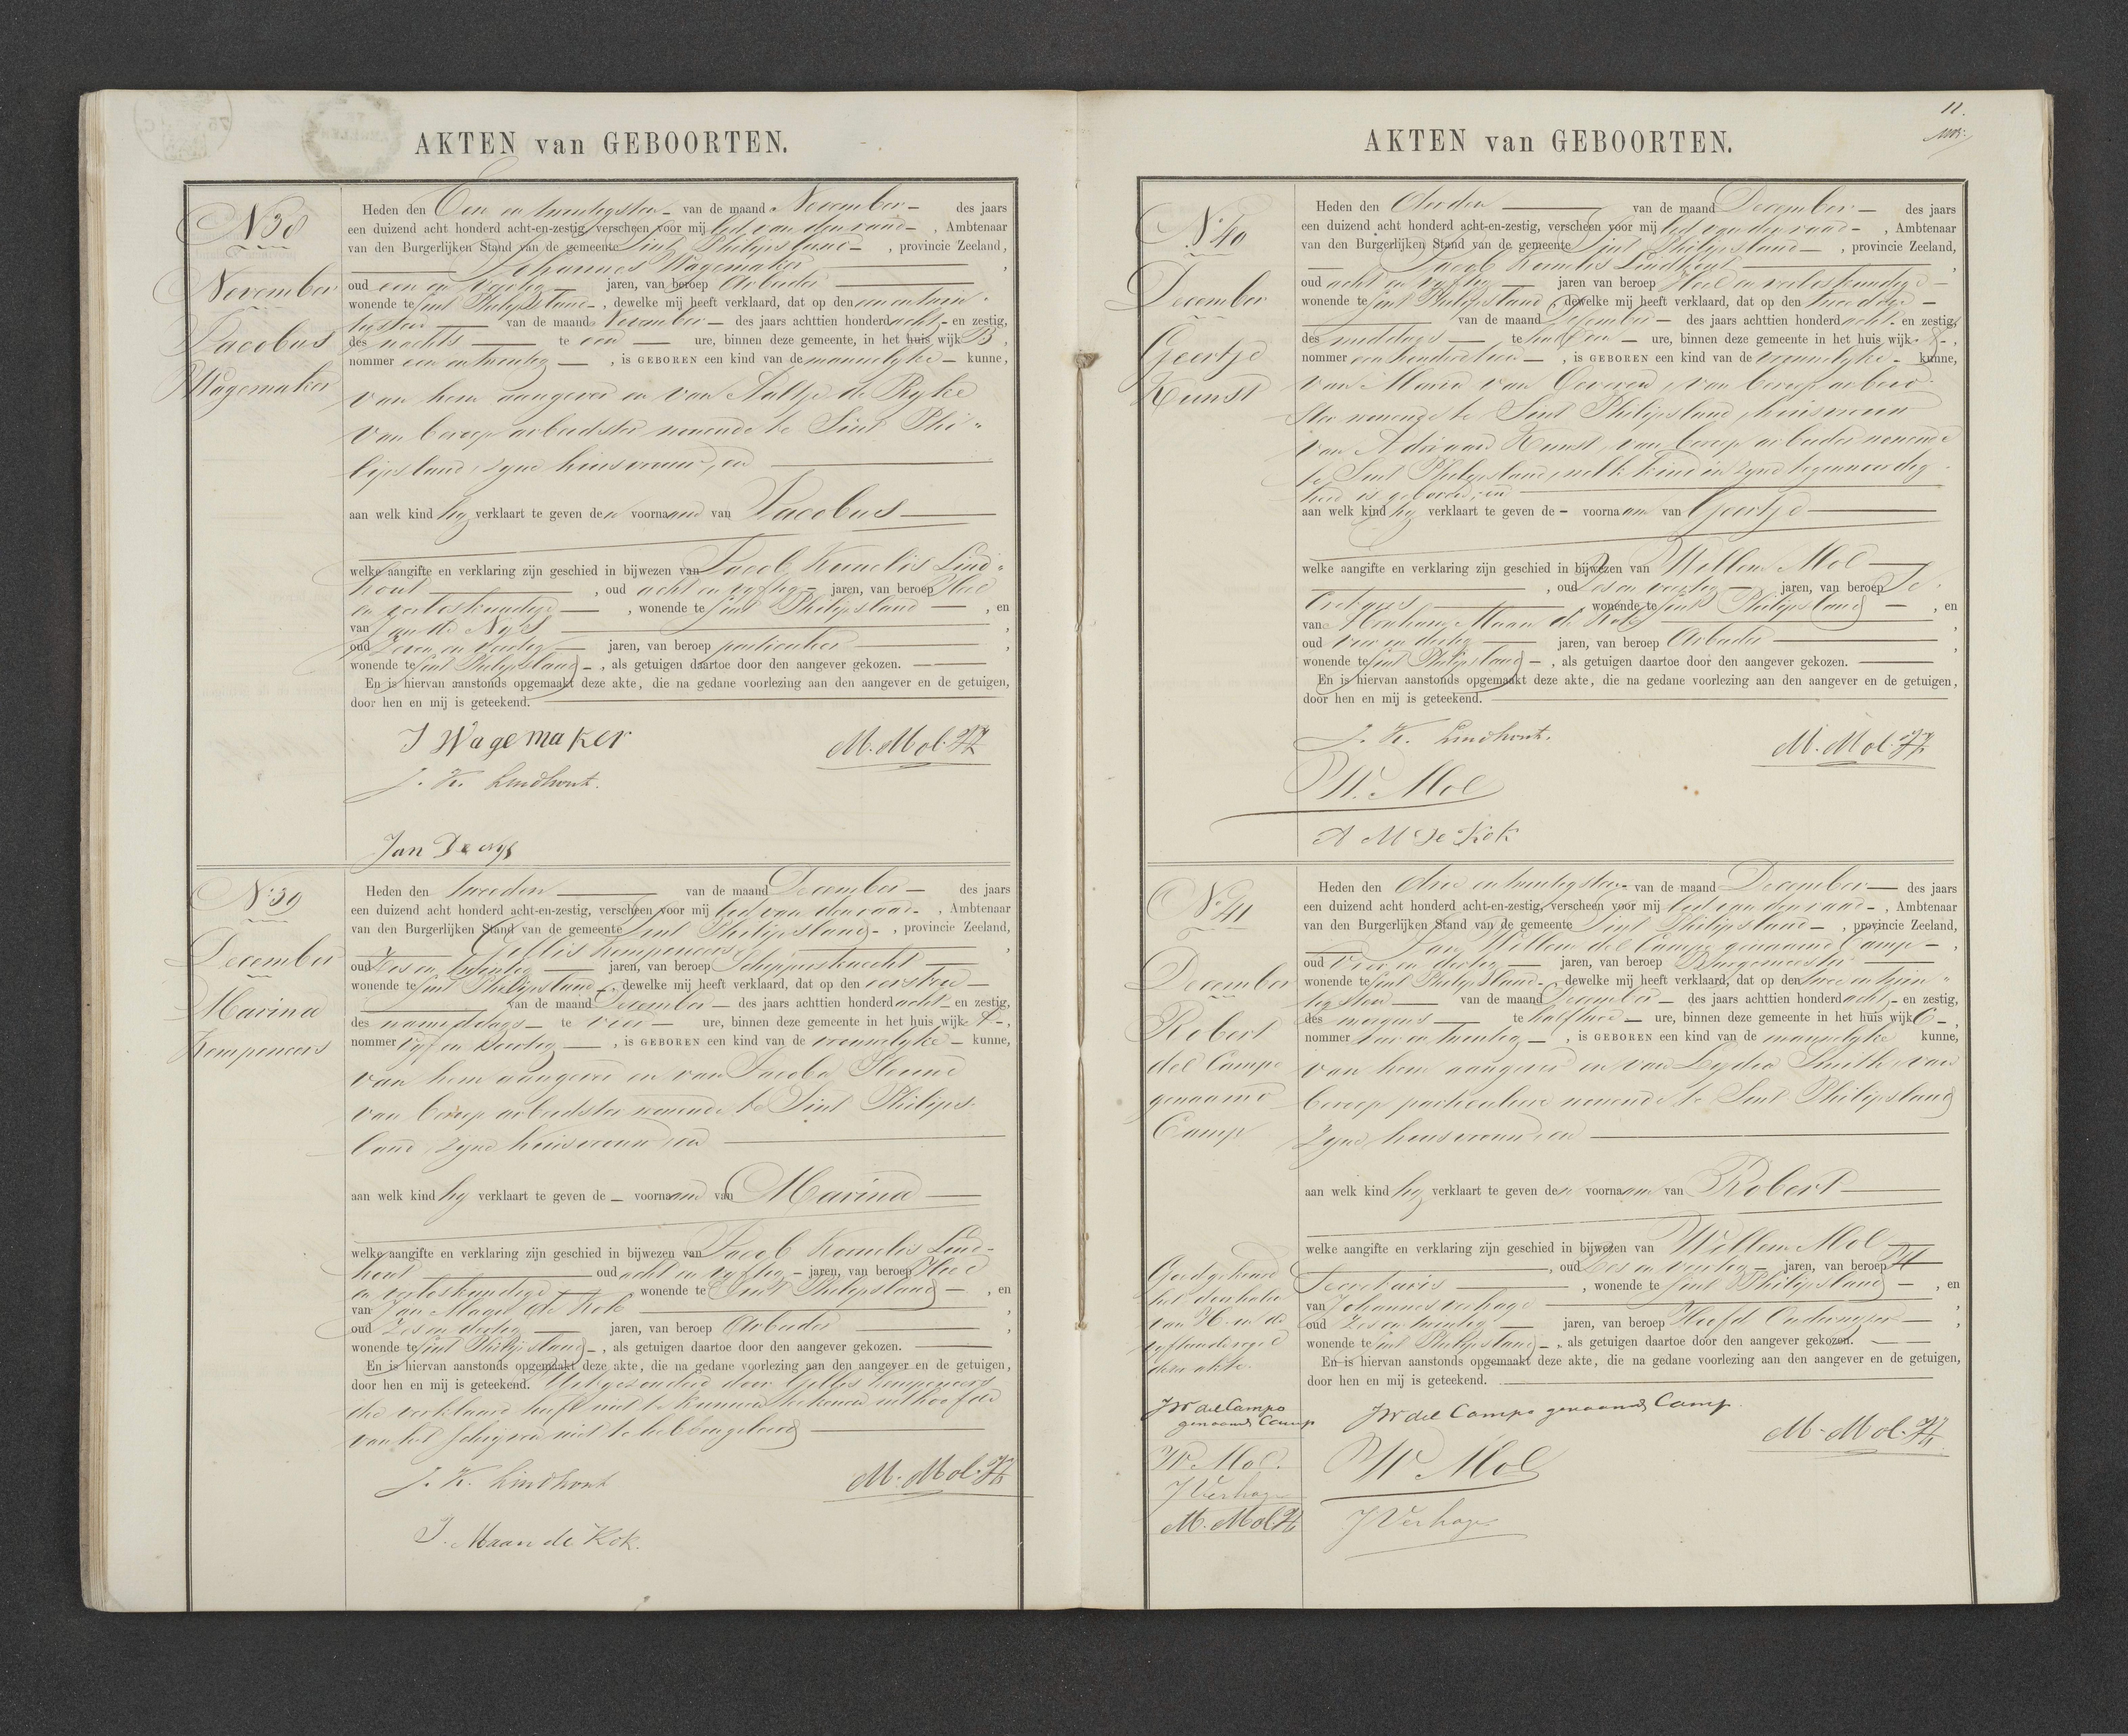 AKTEN van GEBOORTEN.
N 38
November
Jacobus
Wagemaker
Heden den Een en twintigsten van de maand November des jaars
een duizend acht honderd acht-en-zestig, verscheen voor mij lid van den raad, Ambtenaar
van den Burgerlijken Stand van de gemeente Sint Philipsland, provincie Zeeland,
Johannes Wagemaker,
oud een en veertig jaren, van beroep Arbeider
wonende te Sint Philipsland, dewelke mij heeft verklaard, dat op den een en twin-
tigsten van de maand November des jaars achttien honderd acht en zestig,
des nachts te een ure, binnen deze gemeente, in het huis wijk B,
nommer een en twintig, is GEBOREN een kind van de mannelyke kunne,
van hem aangever en van Aaltje de Ryke
van beroep arbeidster wonende te Sint Phi-
lipsland, zyne huisvrouw, en
aan welk kind hy verklaart te geven den voornaam van Jacobus
welke aangifte en verklaring zijn geschied in bijwezen van Jacob Kornelis Lind-
hout, oud acht en vyftig jaren, van beroep Heel
en verloskundige, wonende te Sint Philipsland, en
van Jan de Nijs,
oud Zeven en veertig jaren, van beroep particulier,
wonende te Sint Philipsland, als getuigen daartoe door den aangever gekozen.
En is hiervan aanstonds opgemaakt deze akte, die na gedane voorlezing aan den aangever en de getuigen,
door hen en mij is geteekend.
J Wagemaker
M. Mol. Jz
J. K. Lindhout.
Jan De nys
N: 39
December
Marina
Kempeneers
Heden den tweeden van de maand December des jaars
een duizend acht honderd acht-en-zestig, verscheen voor mij lid van den raad, Ambtenaar
van den Burgerlijken Stand van de gemeente Sint Philipsland, provincie Zeeland,
Gillis Kempeneers,
oud Zes en twintig jaren, van beroep Schippersknecht
wonende te Sint Philipsland, dewelke mij heeft verklaard, dat op den eersten
van de maand December des jaars achttien honderd acht en zestig,
des namiddags te vier ure, binnen deze gemeente in het huis wijk A,
nommer vyf en veertig, is GEBOREN een kind van de vrouwelyke kunne,
van hem aangever en van Jacoba
van beroep arbeidster wonende te Sint Philips-
land, zyne huisvrouw en
aan welk kind hy verklaart te geven de voornaam van Marina
welke aangifte en verklaring zijn geschied in bijwezen van Jacob Kornelis Lind-
hout oud acht en vyftig jaren, van beroep Heel
en verloskundige wonende te Sint Philipsland, en
van Jan Maan de Kok,
oud Zes en dertig jaren, van beroep Arbeider,
wonende te Sint Philipsland, als getuigen daartoe door den aangever gekozen.
En is hiervan aanstonds opgemaakt deze akte, die na gedane voorlezing aan den aangever en de getuigen,
door hen en mij is geteekend. Uitgezonderd door Gillis Kempeneers
die verklaard heeft niet te kunnen teekenen uit hoofde
van het schryven niet te hebben geleerd
J. K. Lindhout
M. Mol. Jz
J. Maan de Kok.
11.
AKTEN van GEBOORTEN.
N: 40
December
Geertje
Kunst
Heden den derden van de maand December des jaars
een duizend acht honderd acht-en-zestig, verscheen voor mij lid van den raad, Ambtenaar
van den Burgerlijken Stand van de gemeente Sint Philipsland, provincie Zeeland,
Jacob Kornelis Lindhout,
oud acht en vyftig jaren van beroep Heel en verloskundige
wonende te Sint Philipsland, dewelke mij heeft verklaard, dat op den tweeden
van de maand December des jaars achttien honderd acht en zestig,
des middags te half een ure, binnen deze gemeente in het huis wijk A,
nommer een honderd twee, is GEBOREN een kind van de vrouwelyke kunne,
van Maria van Oeveren, van beroep arbeid-
ster wonende te Sint Philipsland, huisvrouw
van Adriaan Kunst, van beroep arbeider wonende
te Sint Philipsland, welk kind in zyne tegenwoordig-
heid is geboren, en
aan welk kind hy verklaart te geven de voornaam van Geertje
welke aangifte en verklaring zijn geschied in bijwezen van Willem Mol
, oud Zes en veertig jaren, van beroep Se-
cretaris, wonende te Sint Philipsland, en
van Abraham Maan de Kok,
oud vier en dertig jaren, van beroep Arbeider,
wonende te Sint Philipsland, als getuigen daartoe door den aangever gekozen.
En is hiervan aanstonds opgemaakt deze akte, die na gedane voorlezing aan den aangever en de getuigen,
door hen en mij is geteekend.
J. K. Lindhout.
M. Mol. Jz
W. Mol
A M de Kok
N: 41
December
Robert
del Campo
genaamd
Camp
Heden den drie en twintigsten van de maand December des jaars
een duizend acht honderd acht-en-zestig, verscheen voor mij lid van den raad, Ambtenaar
van den Burgerlijken Stand van de gemeente Sint Philipsland, provincie Zeeland,
Jan Willem del Campo genaamd Camp,
oud Vier en dertig jaren, van beroep Burgemeester
wonende te Sint Philipsland, dewelke mij heeft verklaard, dat op den twee en twin-
tigsten van de maand December des jaars achttien honderd acht en zestig,
des morgens te half twee ure, binnen deze gemeente in het huis wijk C,
nommer vier en twintig, is GEBOREN een kind van de mannelyke kunne,
van hem aangever en van Lydia Smith, van
beroep particuliere wonende te Sint Philipsland
zyne huisvrouw en
aan welk kind hy verklaart te geven den voornaam van Robert
welke aangifte en verklaring zijn geschied in bijwezen van Willem Mol
, oud Zes en veertig jaren, van beroep
Secretaris, wonende te Sint Philipsland, en
van Johannes verhage,
oud Zes en twintig jaren, van beroep Hoofd Onderwyzer,
wonende te Sint Philipsland, als getuigen daartoe door den aangever gekozen.
En is hiervan aanstonds opgemaakt deze akte, die na gedane voorlezing aan den aangever en de getuigen,
door hen en mij is geteekend.
Goedgekeurd
het doorhalen
van H. in de
vyftiende regel
dezer akte.
JW del Campo
genaamd Camp
W. Mol.
J Verhage
M. Mol. Jz
JW del Campo genaamd Camp.
M. Mol. Jz
W Mol
J Verhage